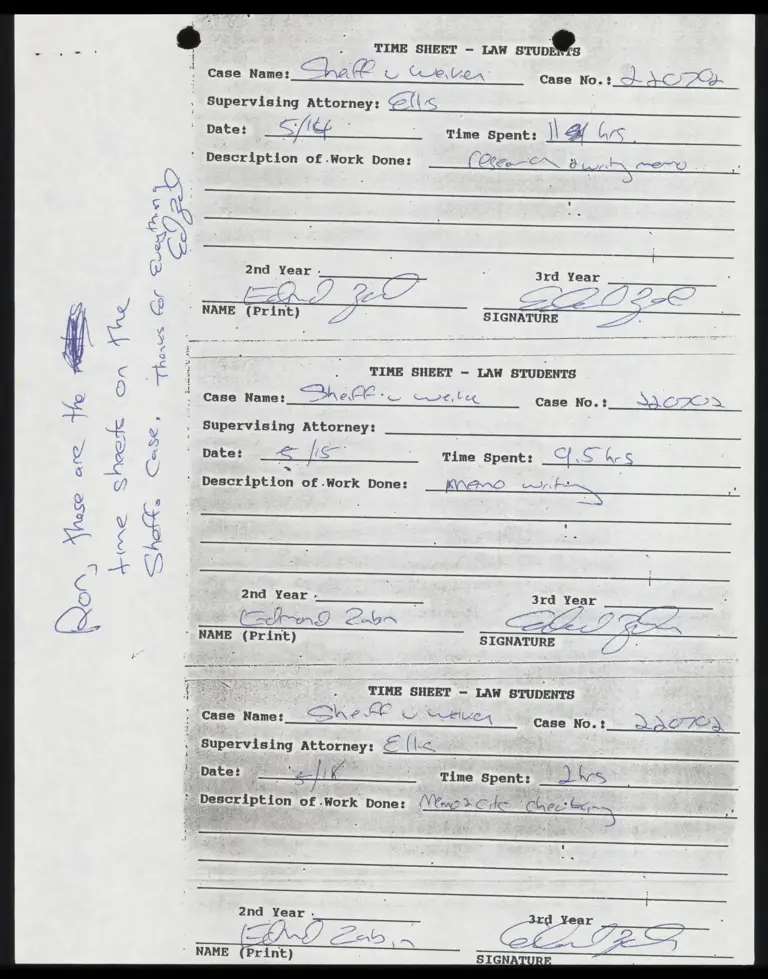 TIME SHEET - LAW STUDENTS
Case Name: Sheff v Weiker Case No.: 220702
Supervising Attorney: Ellis
Date: 5/14 Time Spent: 11 hrs
Description of Work Done: research & writing memo
2nd Year 3rd Year
NAME (Print) SIGNATURE
TIME SHEET - LAW STUDENTS
Case Name: Sheff v Weiker Case No.: 220702
Supervising Attorney:
Date: 5/15 Time Spent: 9.5 hrs
Description of Work Done: memo writing
2nd Year 3rd Year
Edmond Zabin
NAME (Print) SIGNATURE
TIME SHEET - LAW STUDENTS
Case Name: Sheff v Weiker Case No.: 220702
Supervising Attorney: Ellis
Date: 5/18 Time Spent: 2 hrs
Description of Work Done: Memo cite checking
2nd Year 3rd Year
Edmond Zabin
NAME (Print) SIGNATURE
Ron, these are the
time sheets on the
Sheff. Case. Thanks for Everything